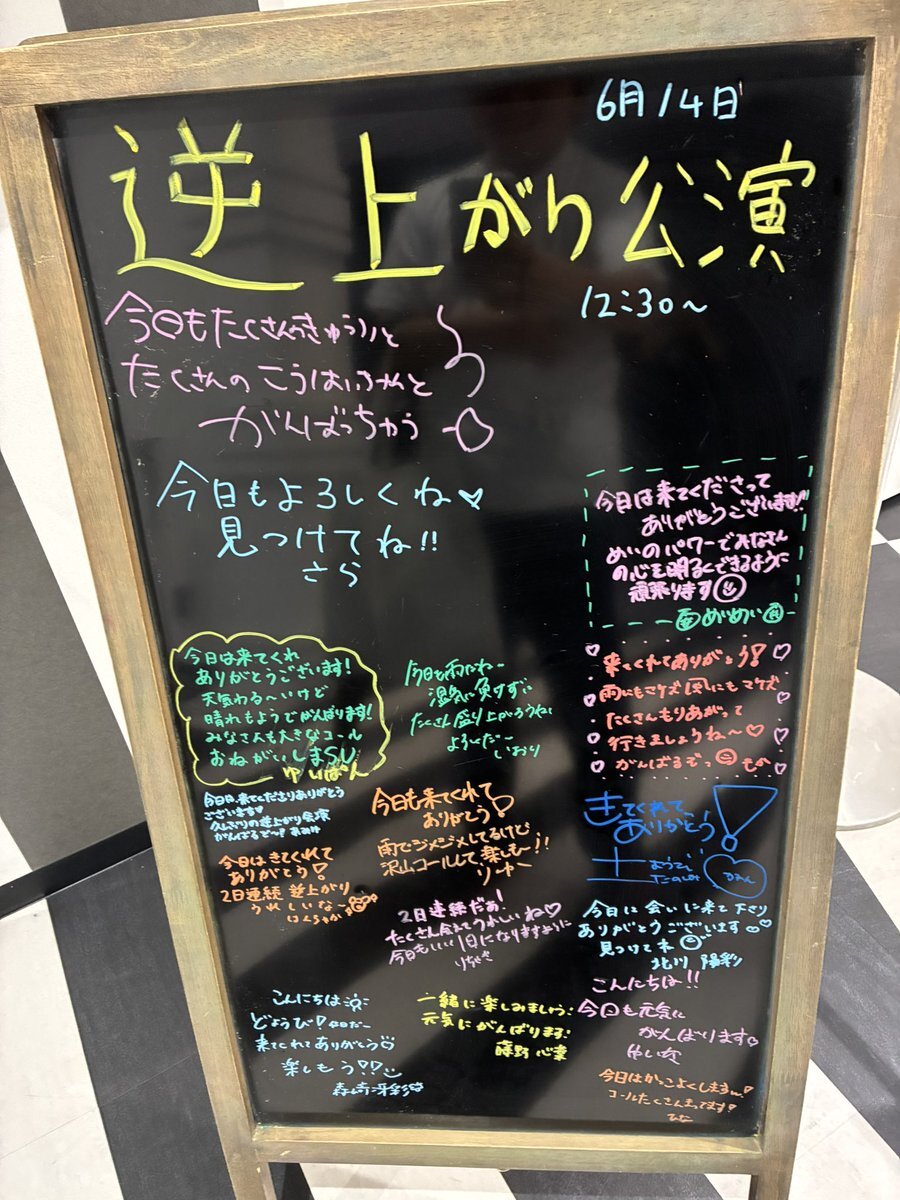 6月14日
逆上がり公演
12:30〜
今日もたくさんの
たくさんのこうはいちゃんと
がんばっちゃう
今日もよろしくね♡
見つけてね!!
さら
今日は来てくださって
ありがとうございます!!
めいのパワーでみなさん
の心を明るくできるように
頑張ります☺
めいめい
今日は来てくれ
ありがとうございます!
天気わる〜いけど
晴れもようでがんばります!
みなさんも大きなコール
おねがいしまSU
ゆいぱん
今日も雨だねー
湿気に負けずに
たくさん盛り上がろうね
よろしくだー
いおり
来てくれてありがとう!
雨にもマケズ 風にもマケズ
たくさんもりあがって
行きましょうね〜♡
がんばるぞっ☺ もか
今日は、来てくださりありがとう
ございます♡
久しぶりの逆上がり公演
がんばるぞ〜!
今日も来てくれて
ありがとう!
雨でジメジメしてるけど
沢山コールして楽しも〜!!
きてくれて
ありがとう!
今日はきてくれて
ありがとう!
2日連続 逆上がり
うれしいな〜
2日連続だぁ!
たくさん会えてうれしいね♡
今日もいい1日になりますように
今日は会いに来て下さり
ありがとうございます
見つけてネ
北川 陽彩
こんにちは
どようび!
来てくれてありがとう♡
楽しもう!!
森﨑冴彩
一緒に楽しみましょう!
元気にがんばります!
藤野 心葉
こんにちは!!
今日も元気に
がんばります
今日はかっこよくしまっ
コールたくさんまってます!
ひな